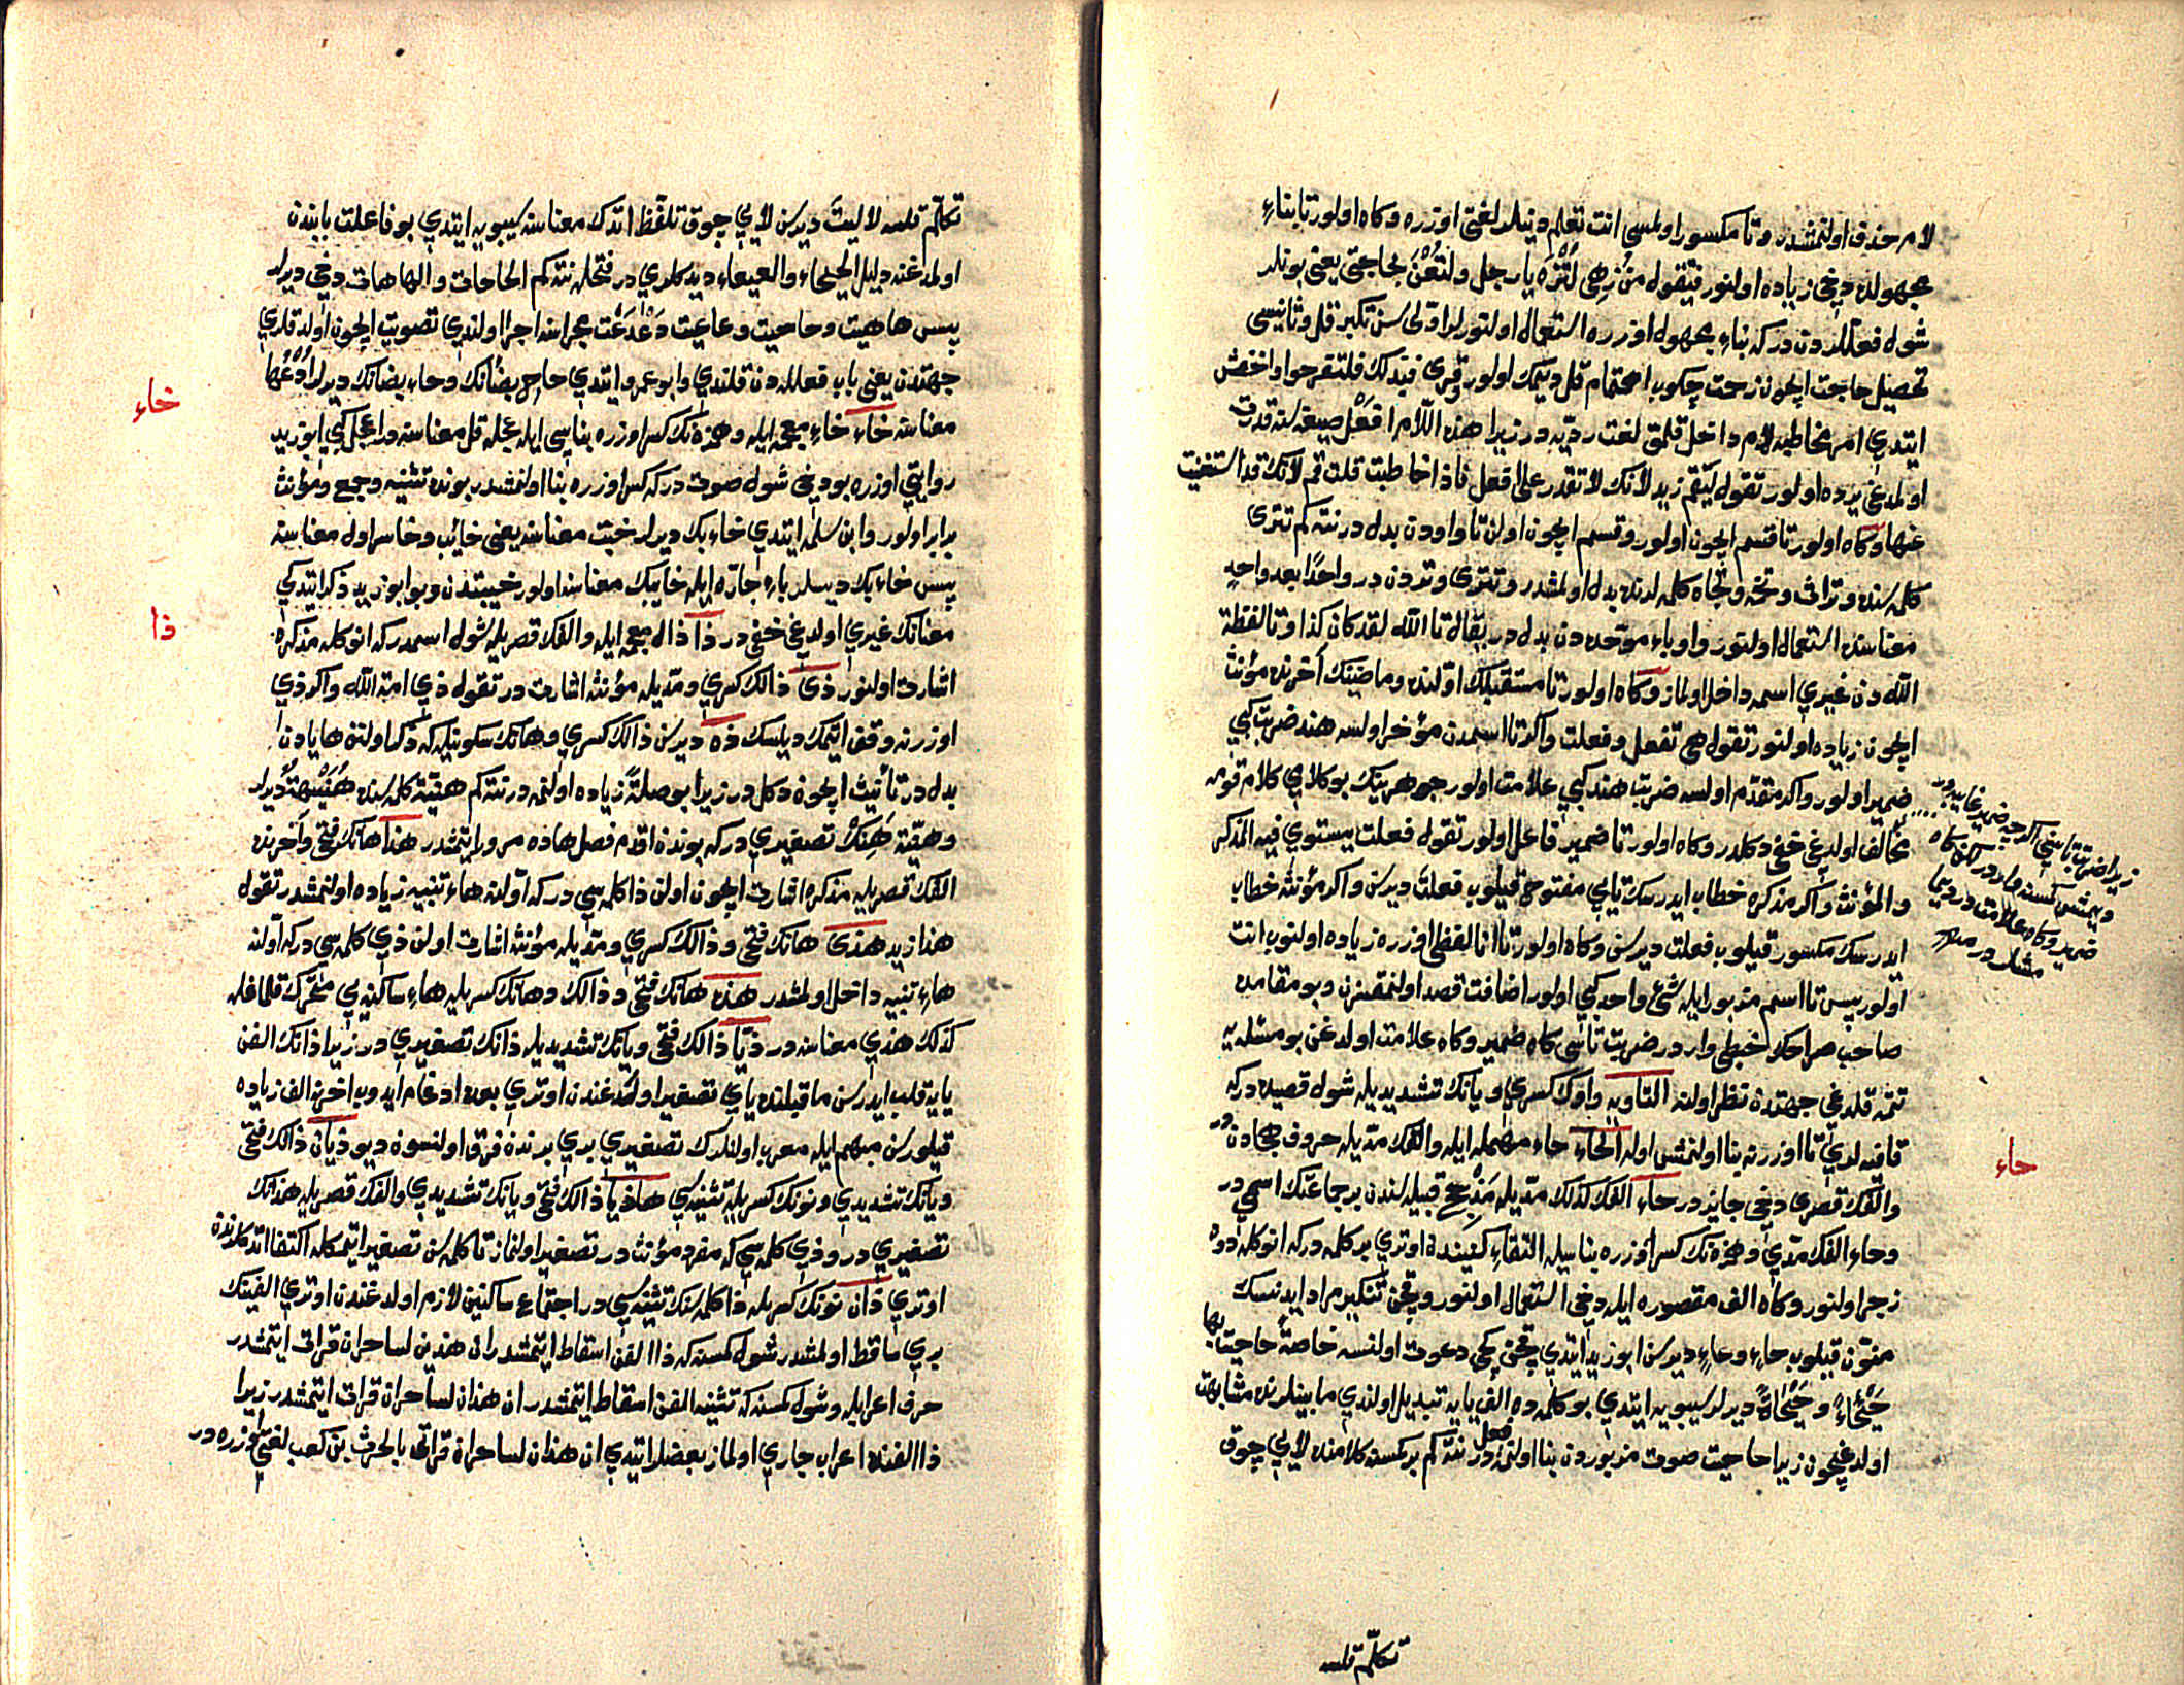 لام حذف اولنمشدر وتا مكسور اولمسى انت تعلم دينلدلغى اوزره وكاه اولور تا بناءِ
مجهولده دخى زياده اولنور فتقوله من زهى لتزه يا رجل ولتعن بحاجتى يعنى بونلر
شول فعللردن در كه بناءِ مجهول اوزره استعمال اولنورلر اولى سن تكبر قل وثانيسى
تحصيل حاجت ايچون زحمت چكوب اهتمام قل ديمك اولور وقرئ فبذلك فلتفرحوا واخفش
ايتدى امر مخاطبه لام داخل قلمق لغت رديه در زيرا هذه اللام افعل صيغه سنه قدرت
اولمدغى يرده اولور تقول ليقم زيد لانك لا تقدر على افعل فاذا خاطبت قلت قم لانك قد استغنيت
عنها وكاه اولور تا قسم ايچون اولور وقسم ايچون اولن تا واودن بدل در نته كم تترى
كلمه سنده وتراث وتخمه وتجاه كلمه لرنده بدل اولمشدر وتترى وتردن در واحدًا بعد واحدٍ
معناسنده استعمال اولنور واو باء موحده دن بدل در يقال تا الله لقد كان كذا وتا لفظة
الله دن غيرى اسمه داخل اولماز وكاه اولور تا مستقبلك اولنده وماضينك آخرنده مؤنث
ايچون زياده اولنور تقول هى تفعل وفعلت واكر تا اسمدن مؤخر اولسه هند ضربت كبى
ضمير اولور واكر متقدم اولسه ضربت هند كبى علامت اولور جوهرينك بو كلامى كلام قومه
مخالف اولدغى خفى دكلدر وكاه اولور تا ضمير فاعل اولور تقول فعلت يستوى فيه المذكر
والمؤنث واكر مذكره خطاب ايدرسك تايى مفتوح قيلوب فعلتَ ديرسن واكر مؤنثه خطاب
ايدرسك مكسور قيلوب فعلتِ ديرسن وكاه اولور تا انا لفظى اوزره زياده اولنوب انت
اولور پس تا اسم مزبور ايله شئ واحد كبى اولور اضافت قصد اولنمقسزن وبو مقامده
صاحب صراحك خبطى وار در ضربت تاسى كاه ضمير وكاه علامت اولدغن بو مثله يه
تتمه قلدغى جهتدن نظر اولنه التاويه واوك كسرى ويانك تشديديله شول قصيده در كه
قافيه لرى تا اوزرنه بنا اولنمش اوله الحاء حاء مهمله ايله والفك مديله حروف هجادندر
والفك قصرى دخى جايز در حاء الفك كذلك مديله مذحج قبيله سندن بر جماعتك اسمى در
وحاءِ الفك مدى وهمزه نك كسر اوزره بناسيله التقاء كينندن اوترى بر كلمه در كه انوكله دوه
زجر اولنور وكاه الف مقصوره ايله دخى استعمال اولنور وقچن تنكير مراد ايدنسك
منون قيلوب حاءٍ وعاءٍ ديرسن ابو زيد ايتدى قچن كچى دعوت اولنسه خاصةً حاحيت بها
حيحاءً وحيحاةً ديرلر سيبويه ايتدى بو كلمه ده الف يايه تبديل اولندى مابينلرنده مشابهت
اولدغيچون زيرا حاحيت صوت مزبوردن بنا اولنمه فعل در نته كم بر كمسنه كلامنده لايى چوق
زيرا ضربت تاسى اكرچه ضمير غايب
ديمش كمسنه وار در لكن كاه
ضمير وكاه علامت در ديما
مثله در منه
حاء
تكلم قلسه
تكلم قلسه لا ليتَ ديرسن لايى چوق تلفظ اتدك معناسنه سيبويه ايتدى بو فاعلت بابندن
اولمدغنه دليل الحيحاء والعيعاء ديدكلرى در فتحله نته كم الحاحات والهاهات دخى ديرلر
پس هاهيت وحاحيت وعاعيت دعدعت مجراسنه اجرا اولندى تصويت ايچون اولدقلرى
جهتدن يعنى باب فعلله دن قلندى وابو عمرو ايتدى حاحِ بضانك وحاءِ بضانك ديرلر ادعها
معناسنه خاء خاءِ معجمه ايله وهمزه نك كسر اوزره بناسى ايله عجله قل معناسنه در اعجل كبى ابو زيد
روايتى اوزره بو دخى شول صوت در كه كسر اوزره بنا اولنمشدر بونده تثنيه وجمع ومؤنث
برابر اولور وابن سلمه ايتدى خاءِ بك ديرلر خبت معناسنه يعنى خائب وخاسر اول معناسنه
پس خاء بك ديسلر باءِ جاره ايله خايبك معناسنه اولور خيبتدن وبو ابو زيد ذكر ايتدكى
معنانك غيرى اولدغى خفى در ذا ذال معجمه ايله والفك قصريله شول اسمدر كه انوكله مذكره
اشارت اولنور ذى ذالك كسرى ومديله مؤنثه اشارت در تقول ذى امة الله واكر ذى
اوزرنه وقف ايتمك ديلسك ذه ديرسن ذالك كسرى وهانك سكونيله كه ذكر اولنن ها يادن
بدل در تأنيث ايچون دكل در زيرا بو صلةً زياده اولنمه در نته كم هنيّة كلمه سنده هنيهة ديرلر
وهنيّة هنك تصغيرى در كه بوندن اقدم فصل هاده مرور ايتمشدر هذا هانك فتحى وآخرنده
الفك قصريله مذكره اشارت ايچون اولن ذا كلمه سى در كه اولنه هاءِ تنبيه زياده اولنمشدر تقول
هذا زيد هذى هانك فتحى وذالك كسرى ومديله مؤنثه اشارت اولن ذى كلمه سى در كه اولنه
هاءِ تنبيه داخل اولمشدر هذه هانك فتحى وذالك وهانك كسريله هاءِ ساكنه يى متحرك قلماغله
كذلك هذى معناسنه در ذيّا ذالك فتحى ويانك تشديديله ذانك تصغيرى در زيرا ذانك الفن
يايه قلب ايدرسن ماقبلنده ياى تصغير اولدغندن اوترى بعده ادغام ايدوب آخرنه الف زياده
قيلورسن مبهم ايله معرب اولنلرك تصغيرى برى برندن فرق اولنسون ديو ذيّان ذالك فتحى
ويانك تشديدى ونونك كسريله تثنيه سى هاذيّا ذالك فتحى ويانك تشديدى والفك قصريله هذانك
تصغيرى در وذى كلمه سى كه مفرد مؤنث در تصغير اولنماز تا كلمه سن تصغير ايتمكله اكتفا اتدكلرندن
اوترى ذان نونك كسريله ذا كلمه سنك تثنيه سى در اجتماع ساكنين لازم اولدغندن اوترى الفينك
برى ساقط اولمشدر شول كمسنه كه ذا الفن اسقاط ايتمشدر ان هذين لساحران قرائت ايتمشدر
حرف اعرابله وشول كمسنه كه تثنيه الفن اسقاط ايتمشدر ان هذان لساحران قرائت ايتمشدر زيرا
ذا الفنده اعراب جارى اولماز بعضلر ايتدى ان هذان لساحران قرائتى بالحرث بن كعب لغتى اوزره در
خاء
ذا